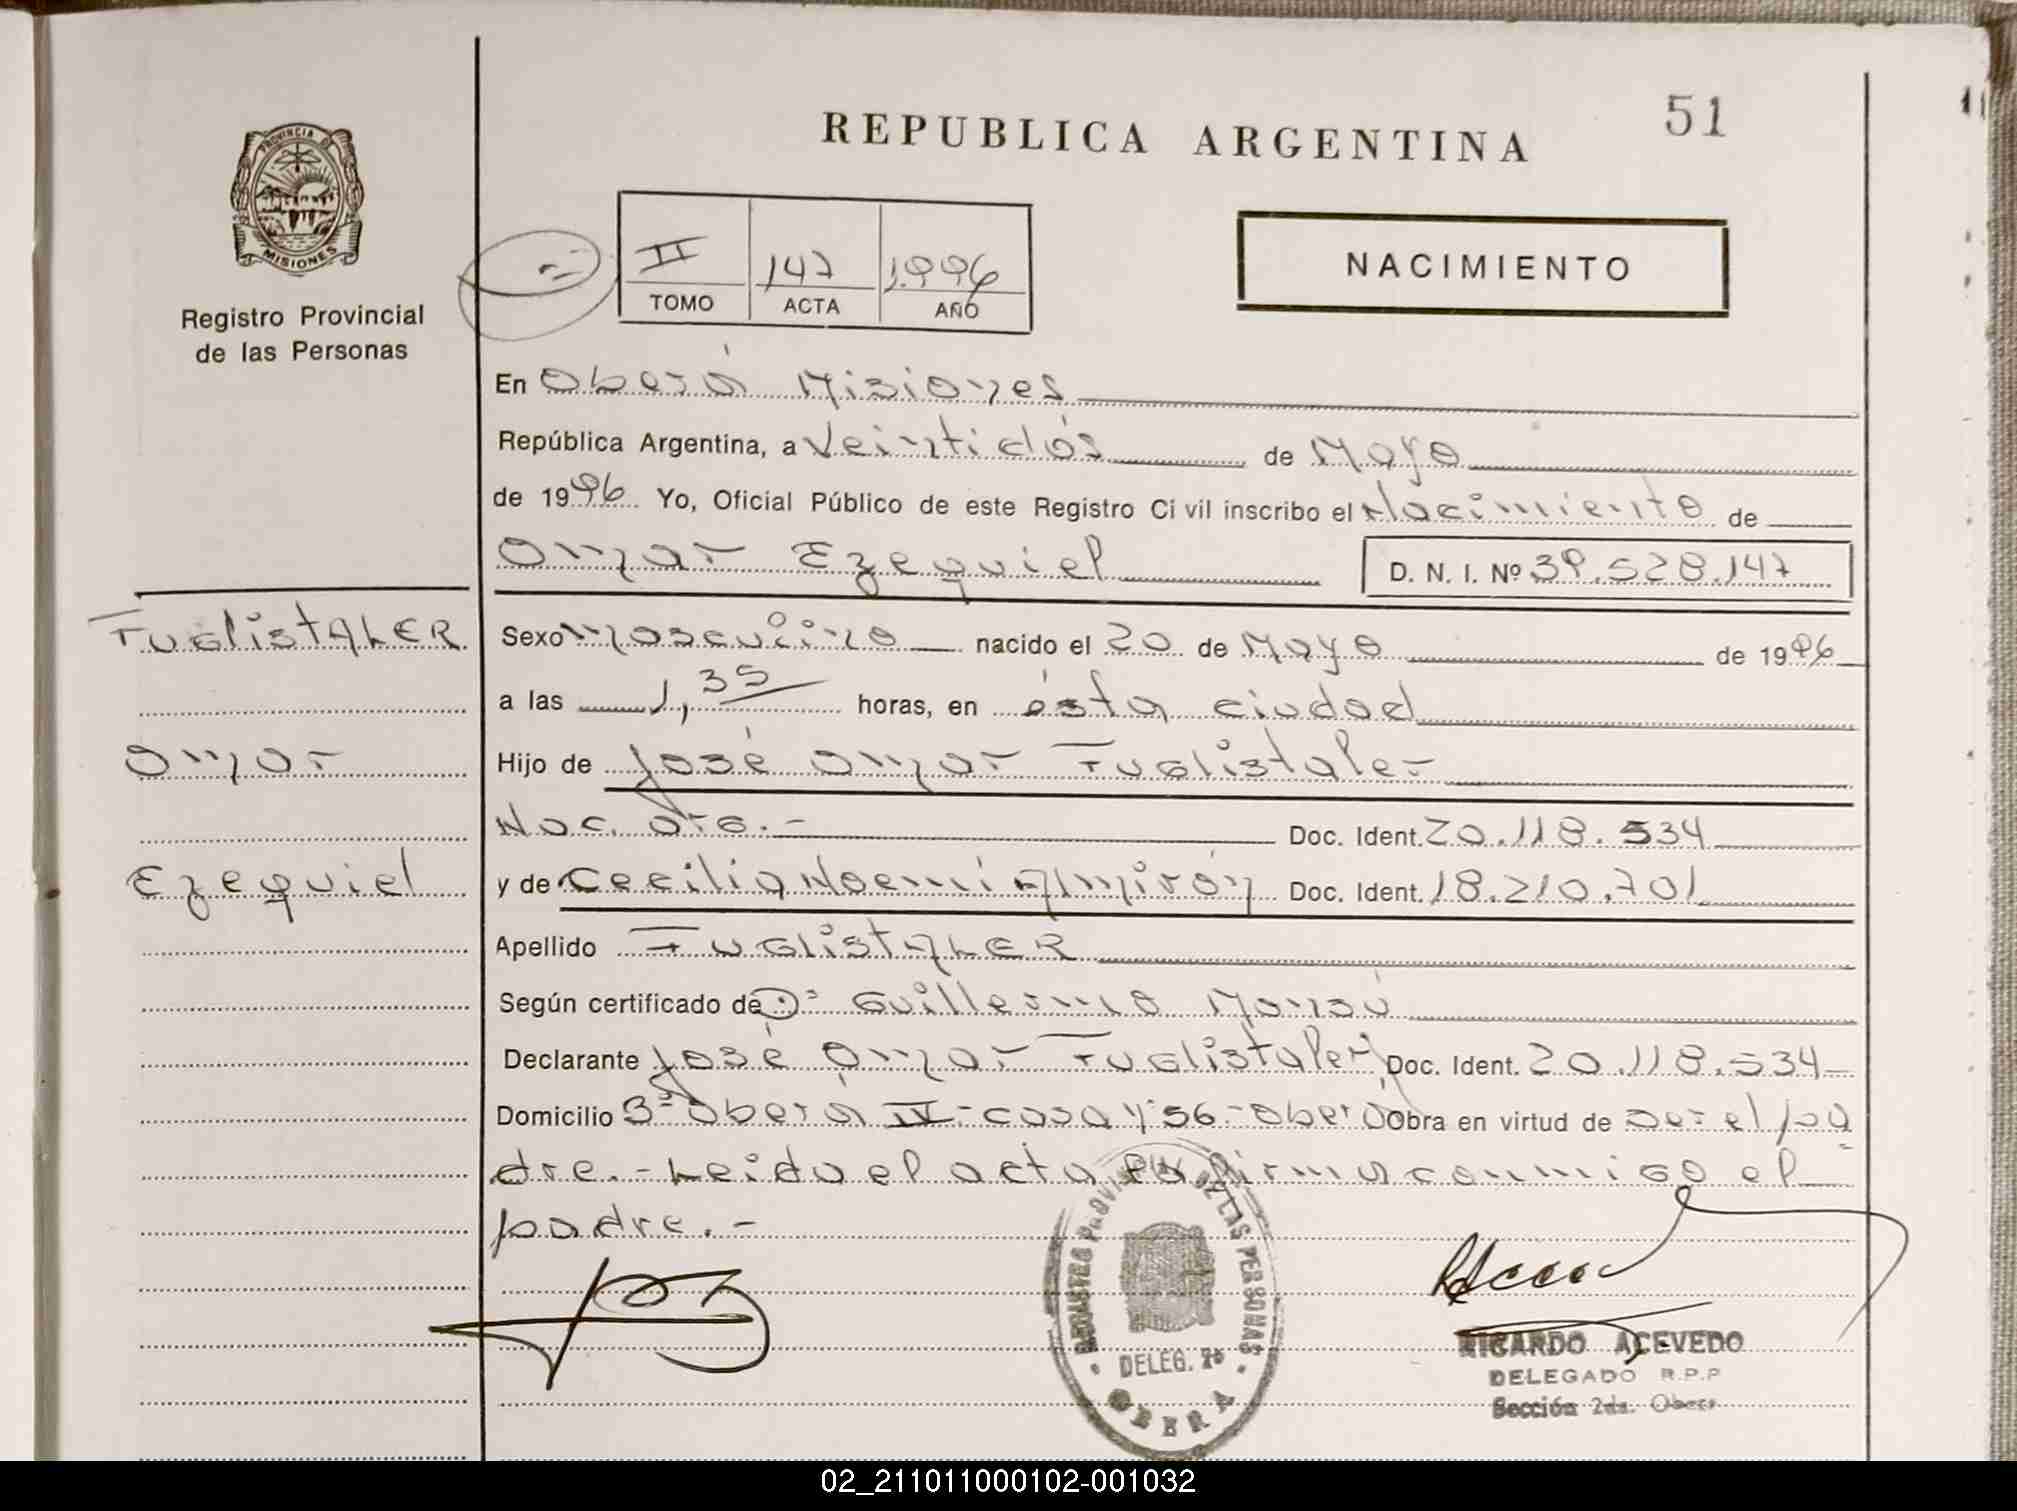 51
REPUBLICA ARGENTINA
PROVINCIA DE
MISIONES
Registro Provincial
de las Personas
II 147 1.996
TOMO ACTA AÑO
NACIMIENTO
En Oberá Misiones
República Argentina, a Veintidós de Mayo
de 1996 Yo, Oficial Público de este Registro Civil inscribo el Nacimiento de
Omar Ezequiel D. N. I. Nº 39.528.147
FuglistALER
Omar
Ezequiel
Sexo masculino nacido el 20 de Mayo de 1996
a las 1,35 horas, en ésta ciudad
Hijo de José Omar Fuglistaler
Nac. Arg.- Doc. Ident. 20.118.534
y de Cecilia Noemí Almirón Doc. Ident. 18.210.701
Apellido FuglistALER
Según certificado de Dr Guillermo Mansú
Declarante José Omar Fuglistaler Doc. Ident. 20.118.534
Domicilio Bº Oberá IV - casa Nº 56 - Oberá Obra en virtud de ser el pa
dre.- Leida el acta la firma conmigo el
padre.-
REGISTRO PROVINCIAL DE LAS PERSONAS
DELEG. 2ª
OBERA
RICARDO ACEVEDO
DELEGADO R.P.P
Sección 2da. Obera
02_211011000102-001032